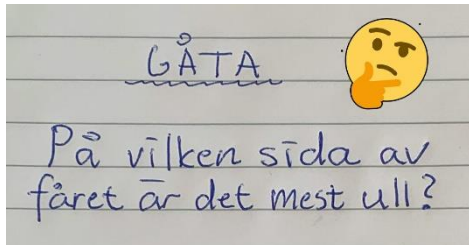 GÅTA
På vilken sida av
fåret är det mest ull?